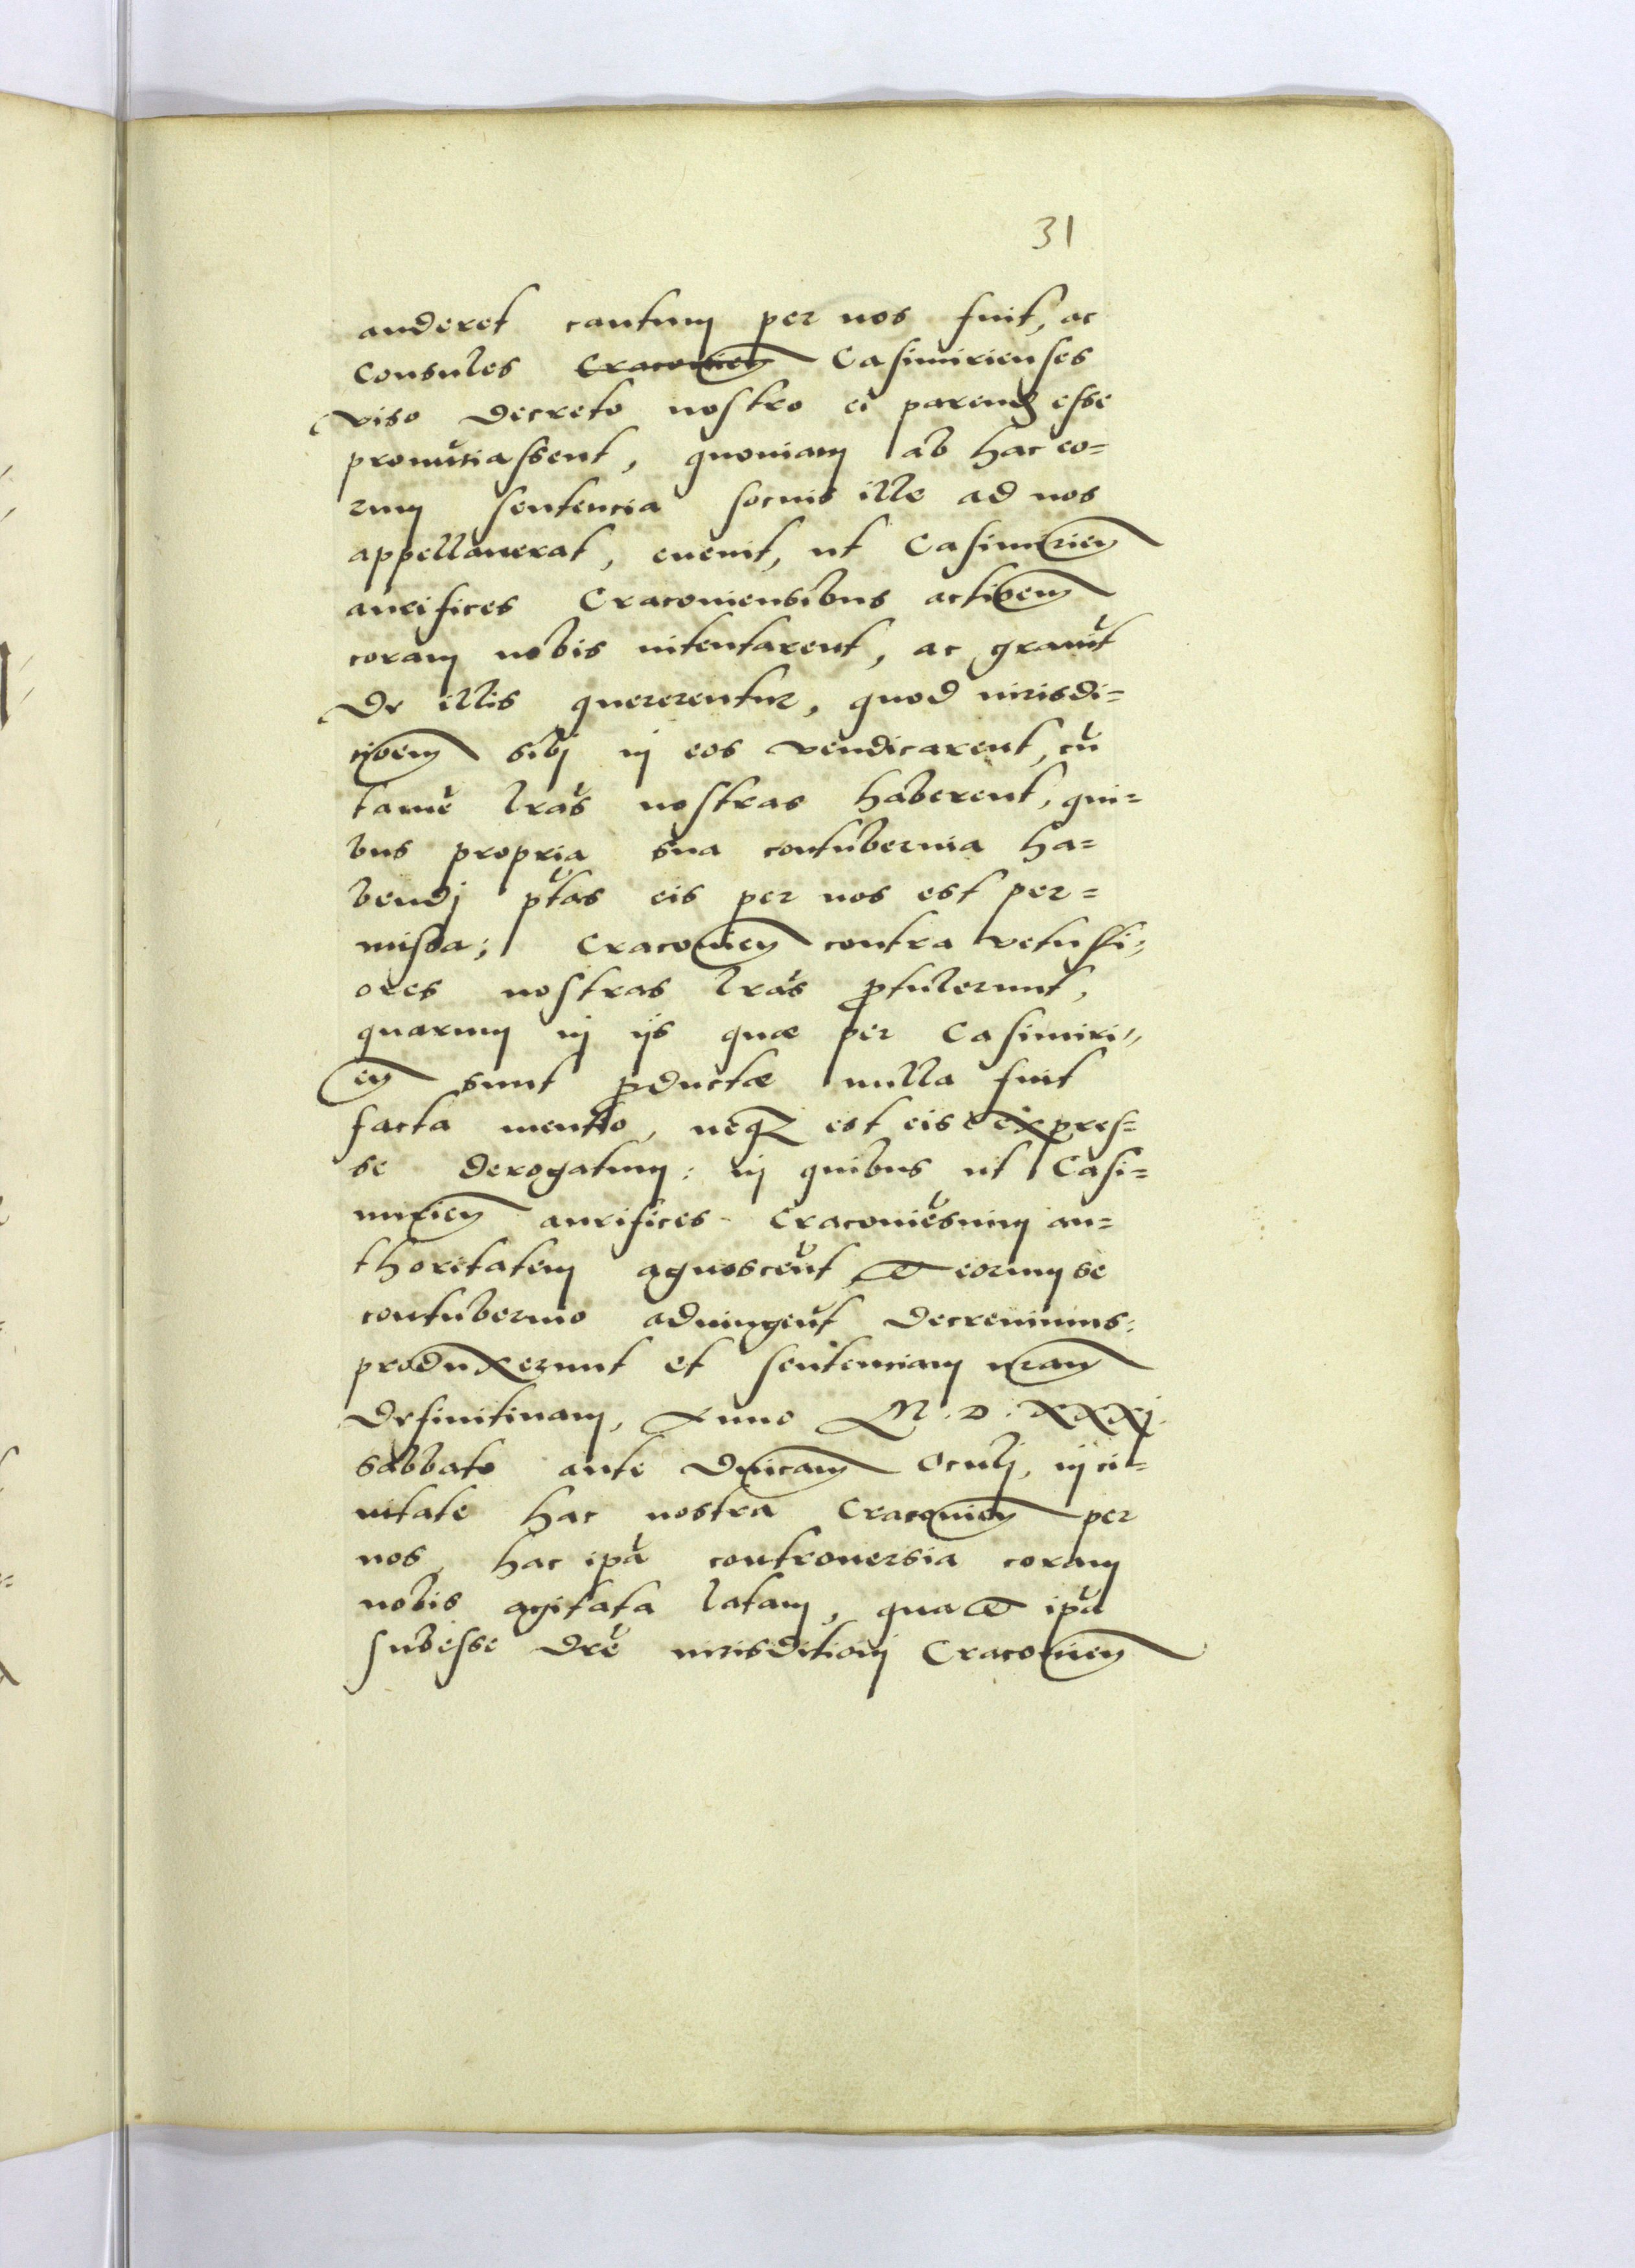 31
auderet cautum per nos fuit, ac
Consules Cracovien Casimirienses
viso decreto nostro ei parendū esse
pronūtiassent, quoniam ab hac eo=
rum sentencia socius ille ad nos
appellauerat, euenit, ut Casimirien
aurifices Cracouiensibus actioem
coram nobis intentarent, ac grauit
de illis quererentur, quod iurisdi=
tioem sibj in eos vendicarent, cū
tamē lras nostras haberent, qui=
bus propria sua contubernia ha=
bendj ptas eis per nos est per=
missa; Cracouien contra vetusti=
ores nostras lras ptulerunt,
quarum in ijs quæ per Casimiri=
en sunt pductæ nulla fuit
facta mentio, neq est eis expres=
se derogatum: in quibus ut Casi=
mirien aurifices Cracouiēsium au=
thoritatem agnoscēt, et eorum se
contubernio adiungēt decreuimus:
produxerunt et sententiam nram
definitiuam, Anno M.D.XXXj.
Sabbato ante Dnicam Oculj, in ci=
uitate hac nostra Cracouien per
nos, hac ipa controuersia coram
nobis agitata latam, qua et ipa
subesse dre iurisditionj Cracouien